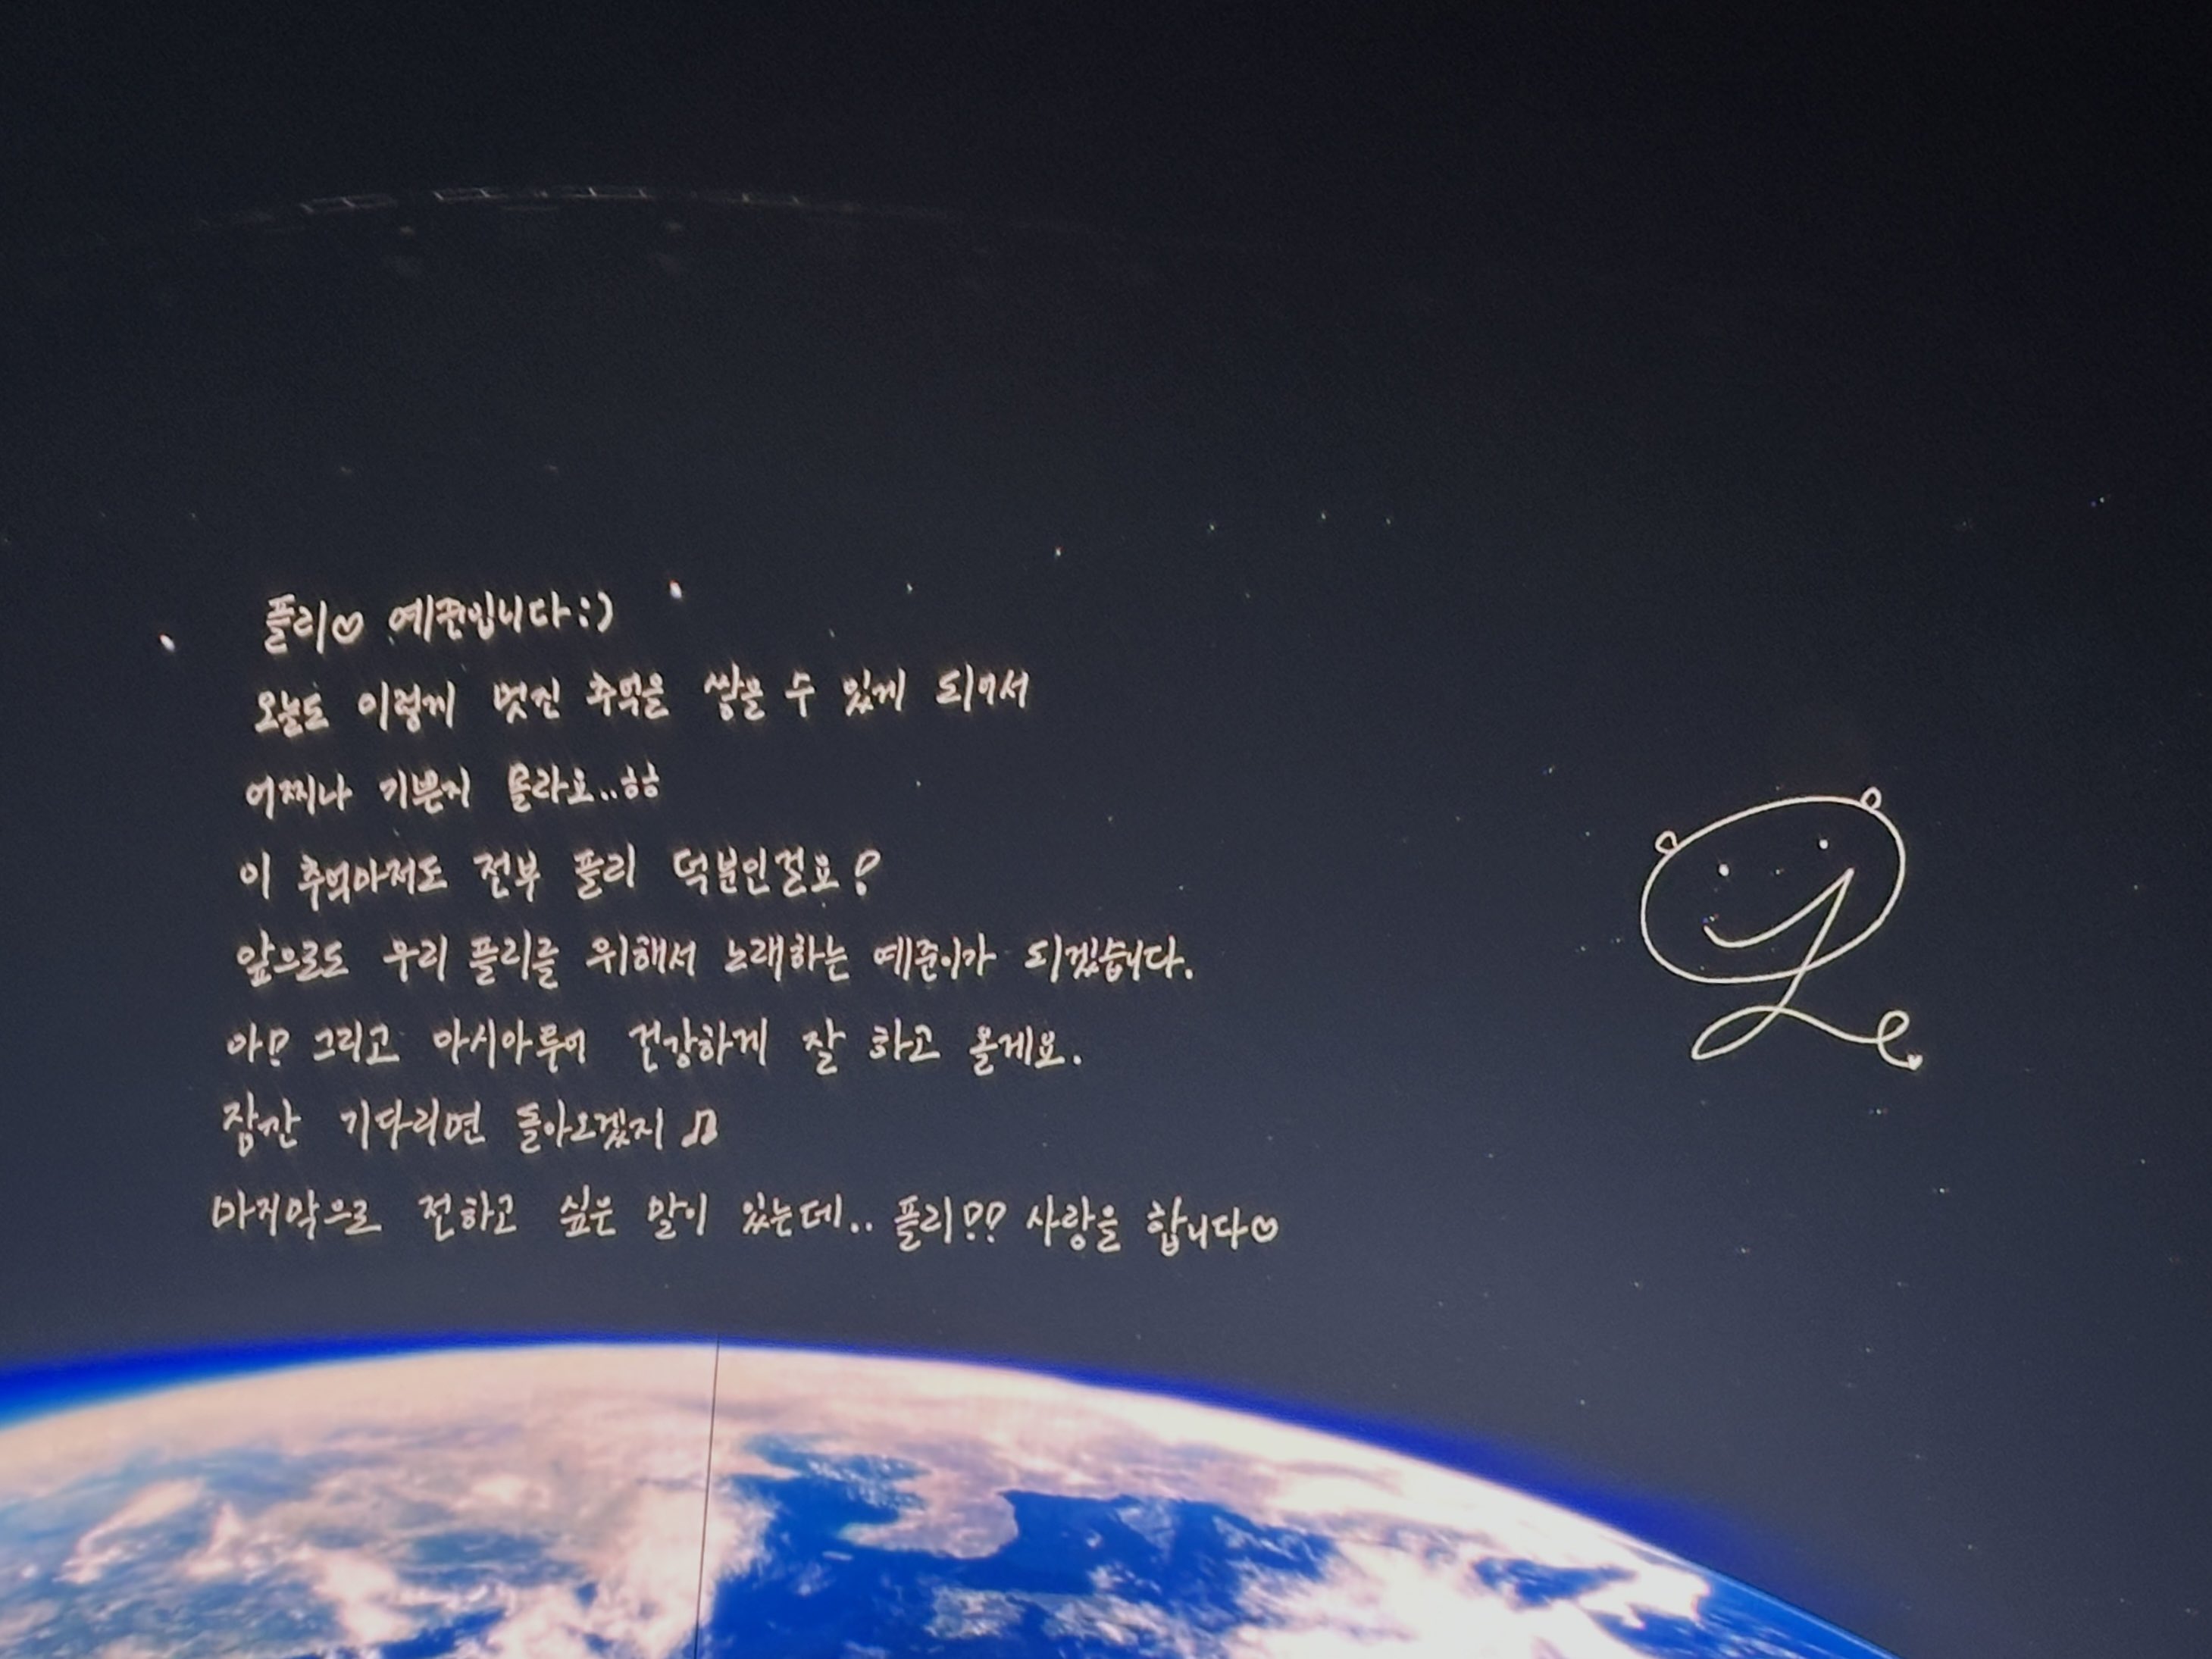 플리♡ 예준입니다:)
오늘도 이렇게 멋진 추억을 쌓을 수 있게 되어서
어찌나 기쁜지 몰라요..ㅎㅎ
이 추억마저도 전부 플리 덕분인걸요!
앞으로도 우리 플리를 위해서 노래하는 예준이가 되겠습니다.
아! 그리고 아시아투어 건강하게 잘 하고 올게요.
잠깐 기다리면 돌아오겠지 ♫
마지막으로 전하고 싶은 말이 있는데.. 플리!? 사랑을 합니다♡